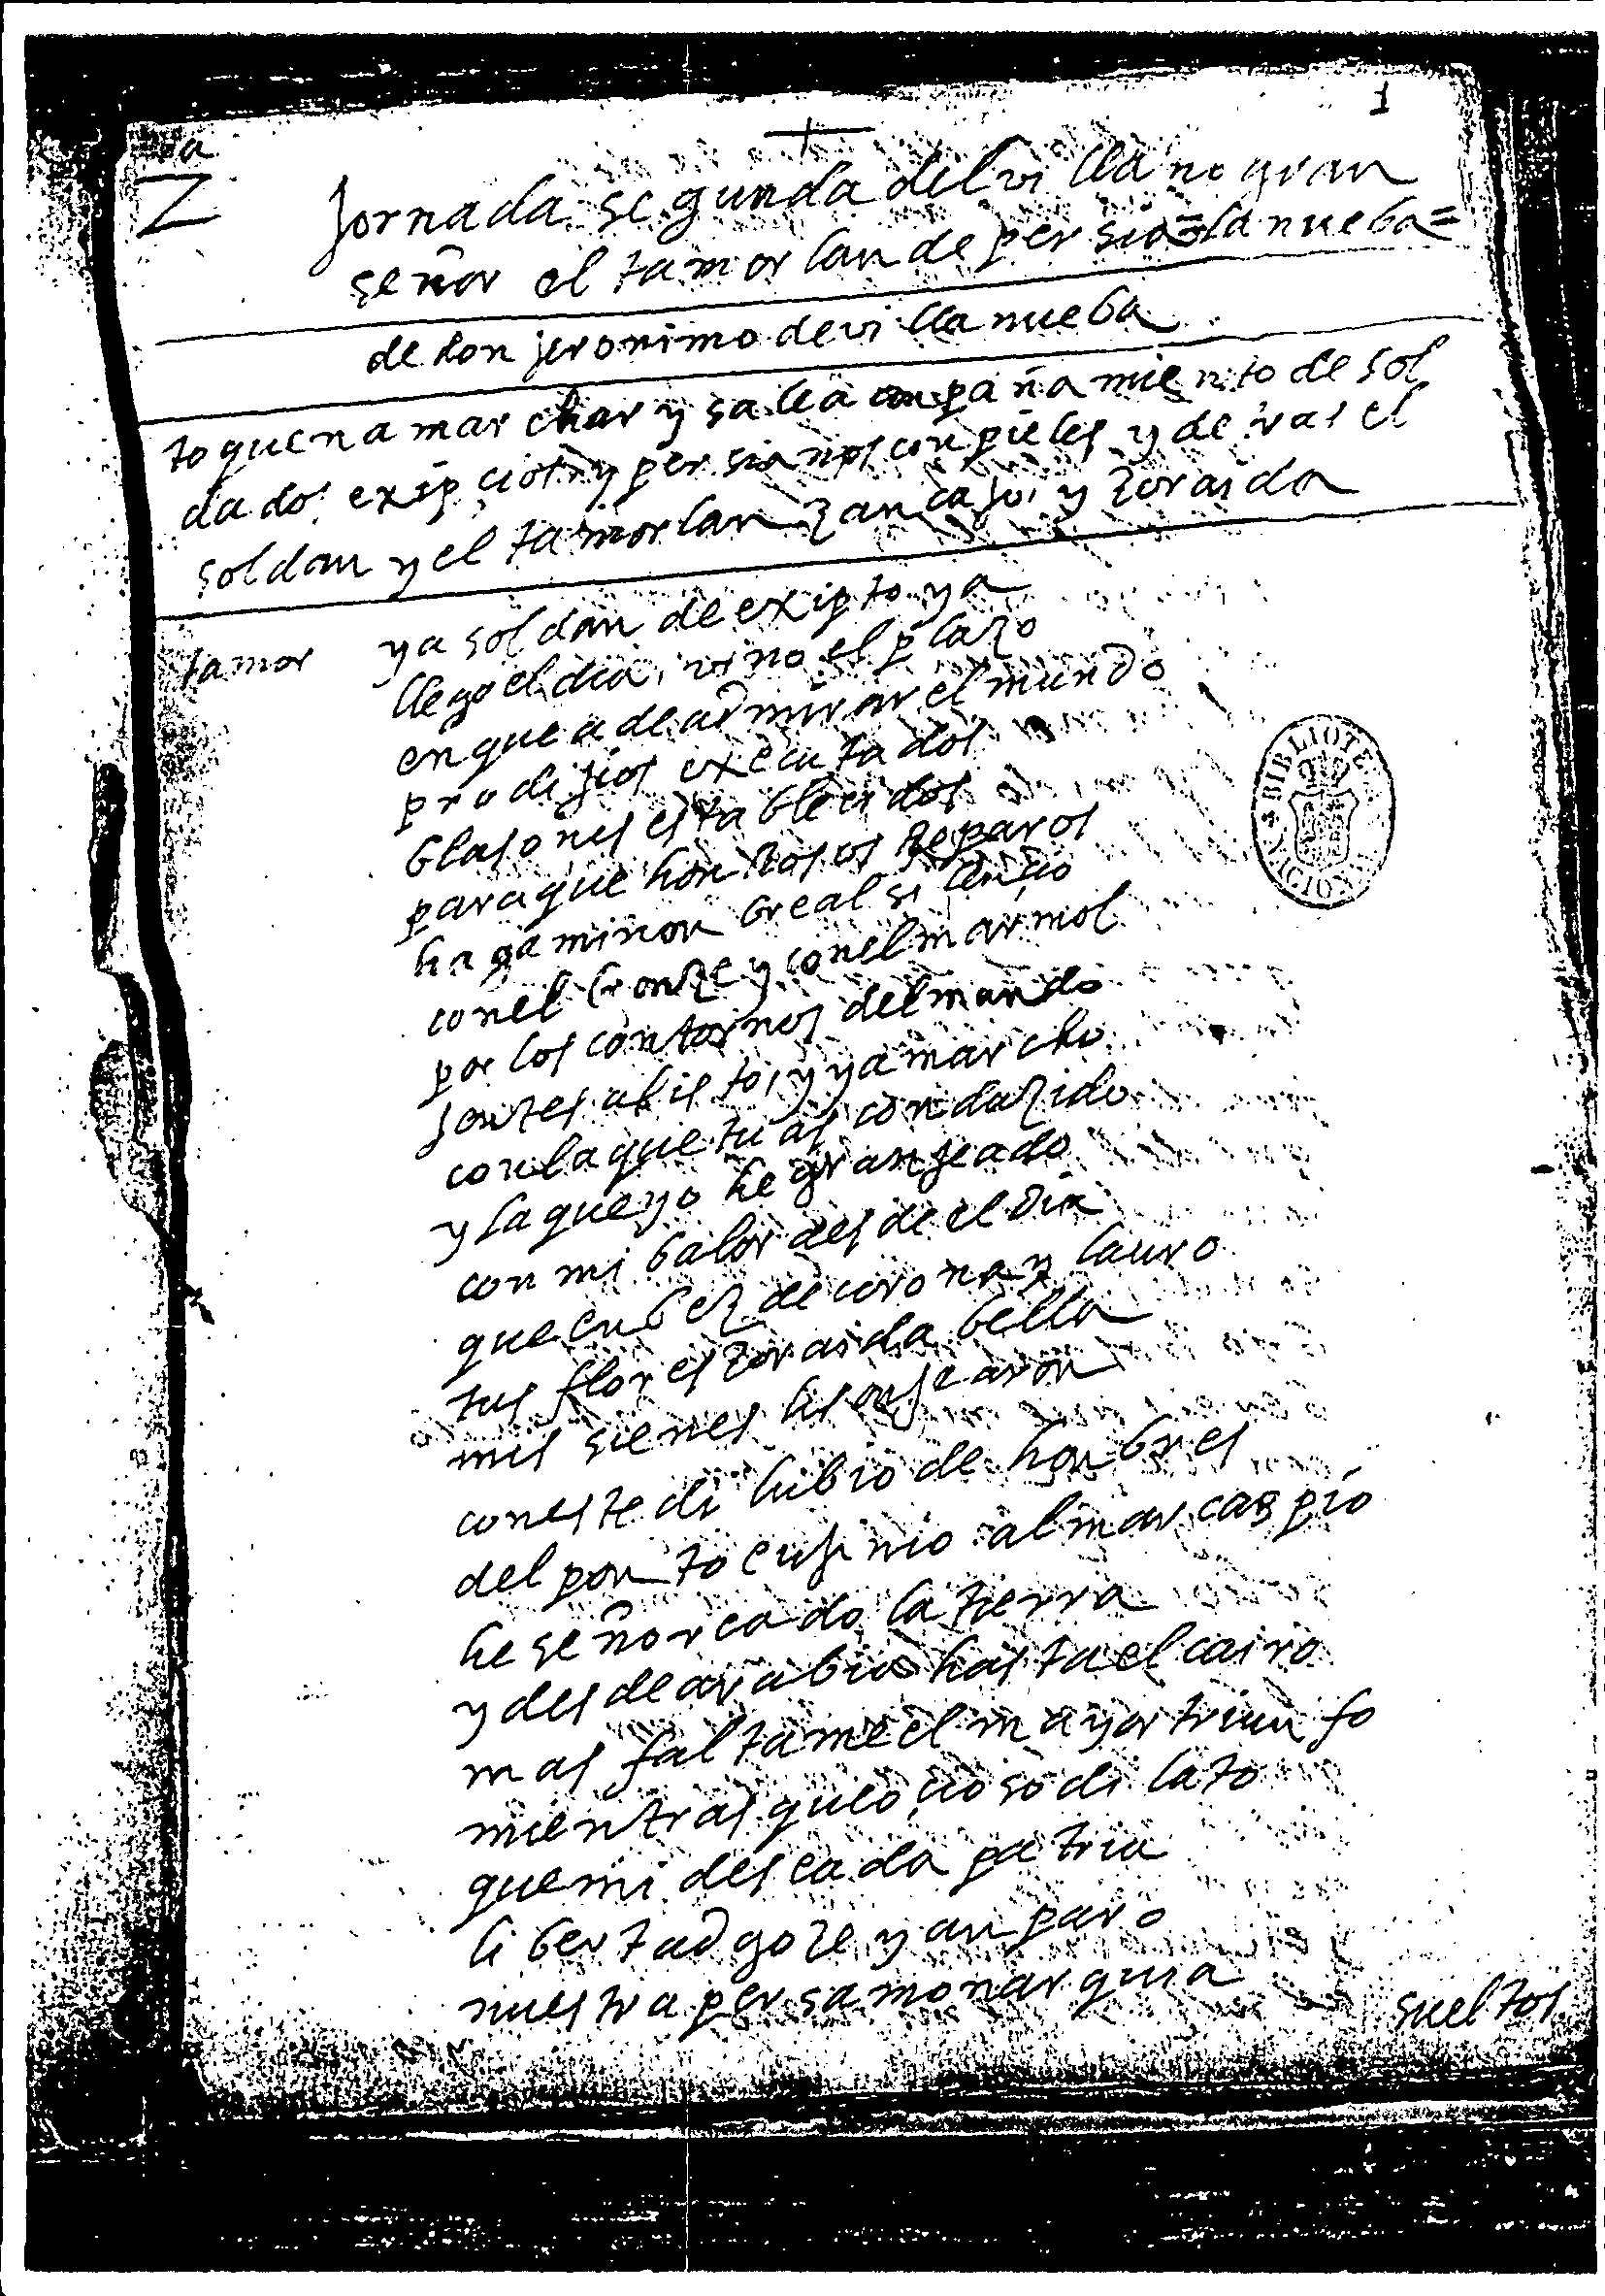 1
2ª
Jornada segunda del villano gran
señor el tamorlan de persia = la nueba =
de don jeronimo de villanueba
toquen a marchar y salla acompañamiento de sol
dados exipcios y persianos con pieles y detras el
soldan y el tamorlan zancajo, y zoraida
tamor ya soldan de exipto ya
llego el dia, vino el plazo
en que a de admirar el mundo
prodijios executados
blasones establecidos
para que honrosos reparos
haga minon breal silencio
con el bronze y con el marmol
por los contornos del mundo
jentes alisto, y ya marcho
con la que tu as conduzido
y la que yo he granjeado
con mi balor desde el dia
que en bez de corona y lauro
tus flores zoraida bella
mis sienes lisonjearon
con este dilubio de honbres
del ponto eusinio al mar caspio
he señoreado la tierra
y desde arabia hasta el cairo
mas faltame el mayor triunfo
mientras que ocioso dilato
que mi deseada patria
libertad goze y anparo
nuestra persa monarquia
sueltos
BIBLIOTECA NACIONAL